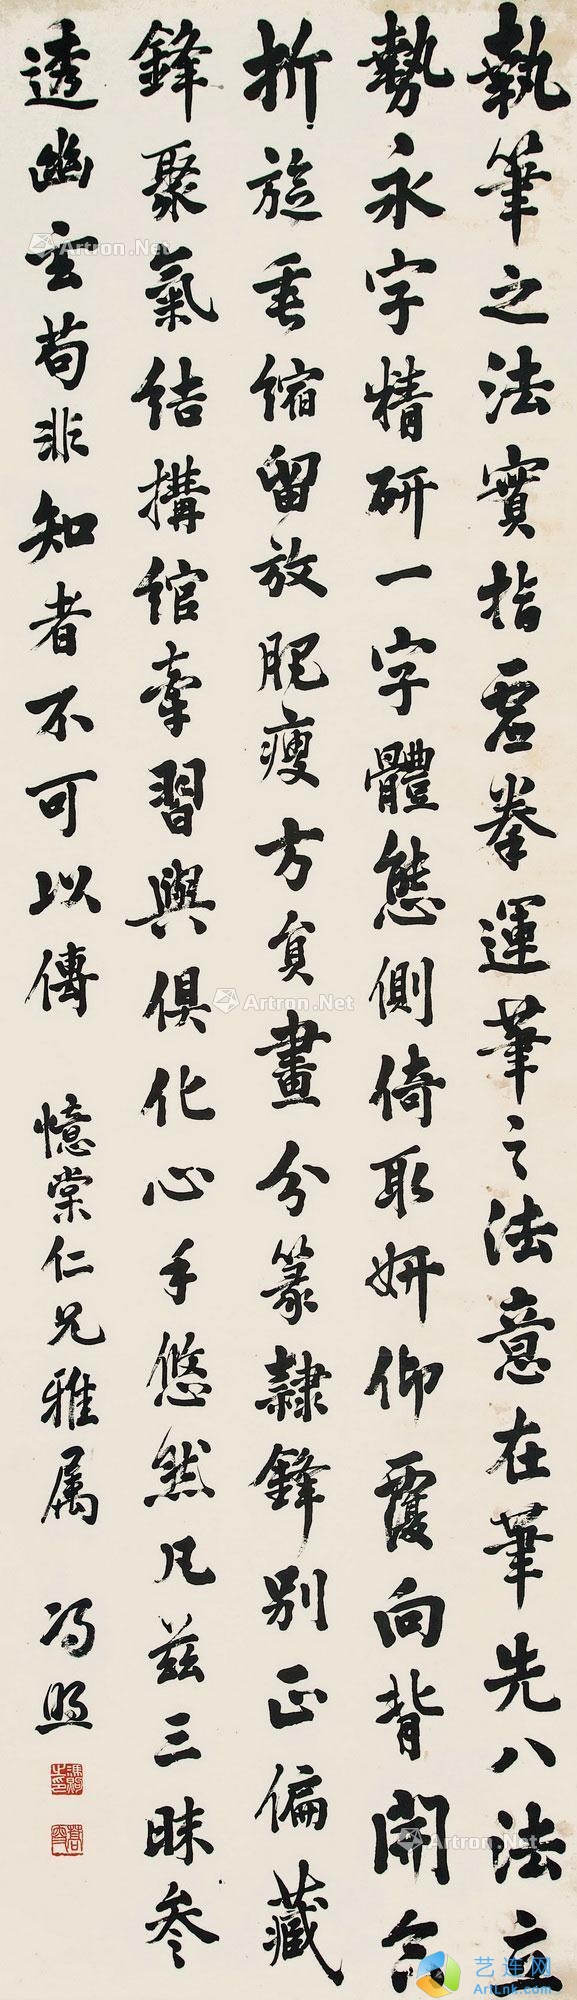 執筆之法實指虛拳運筆之法意在筆先八法立
勢永字精研一字體態側倚取妍仰覆向背開合
折旋垂縮留放肥瘦方員畫分篆隸鋒別正偏藏
鋒聚氣結搆綰牽習與俱化心手悠然凡茲三昧叅
透幽玄苟非知者不可以傳
憶棠仁兄雅属
馮煦
Artron.Net
Artron.Net
Artron.Net
Artron.Net
Artron.Net
Artron.Net
艺连网
ArtLnk.com